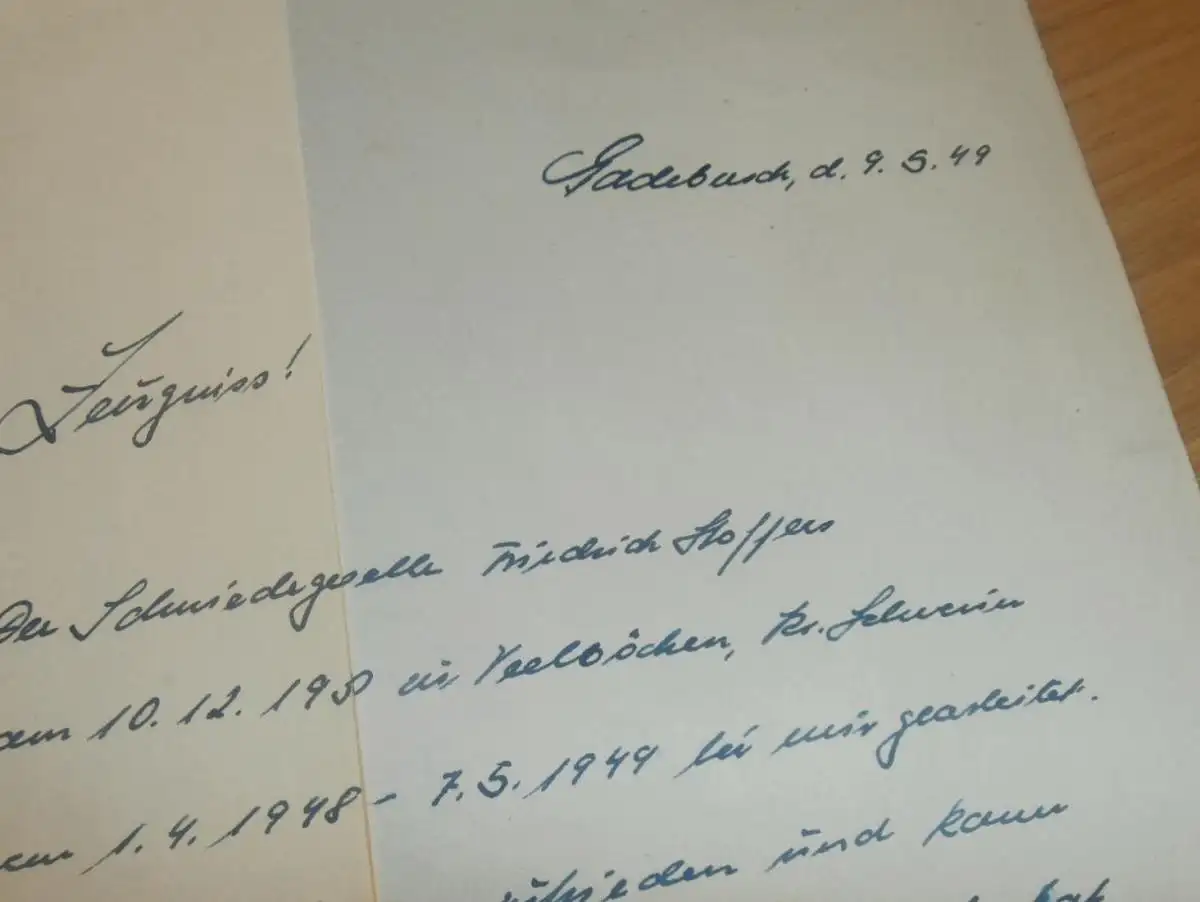 Gadebusch, d. 9.5.49
Zeugniss!
Der Schmiedegeselle Friedrich Stoffers
am 10.12.19 in Veelböken, Kr. Schwerin
1.4.1948 - 7.5.1949 bei mir gearbeitet.
zufrieden und kann
hat